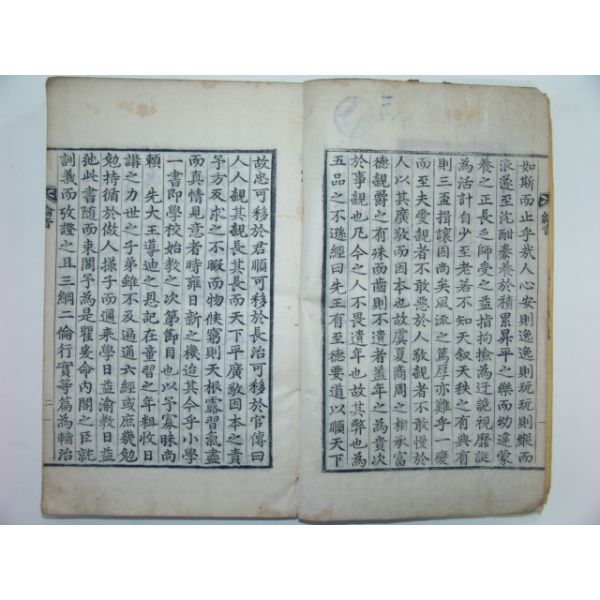 如斯而止乎哉人心安則逸逸則玩玩則縱而
浪遂至沈酣豢養於積累昇平之樂而幼違蒙
養之正長乏師受之益指拘撿為迂詭視靡誕
為活計自少至老若不知天叙天秩之有典有
則三盃揖讓因尚矣風流之篤厚亦難乎一變
而至夫愛親者不敢惡於人敬親者不敢慢於
人以其廣敬而因本也故虞夏商周之相承富
德親爵之有殊而齒則不遺者盖年之為貴次
於事親也凡今之人不畏遺年也故其弊也為
五品之不遜經曰先王有至德要道以順天下
故忠可移於君順可移於長治可移於官傳曰
人人親其親長其長而天下平廣敬因本之責
予方反求之不暇而物候窮則天根露習氣盡
而真情見意者時雍日新之機迨其今乎小學
一書即學校始教之次第節目也以予寡昧尚
賴　先大王導迪之恩記在童習之年粗收日
講之力世之子弟雖不及遍通六經或庶幾勉
勉持循於做人㨾子而逈來學日益渝教日益
弛此書隨而束閣予為是瞿爰命內閣之臣就
訓義而攷證之且三綱二倫行實等篇為輔治
綸音
二